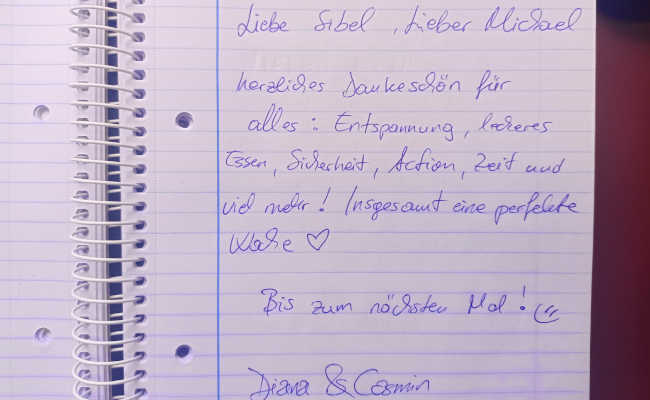 Liebe Sibel, Lieber Michael
herzliches Dankeschön für
alles: Entspannung, leckeres
Essen, Sicherheit, Action, Zeit und
viel mehr! Insgesamt eine perfekte
Woche ♡
Bis zum nächsten Mal!
Diana & Cosmin